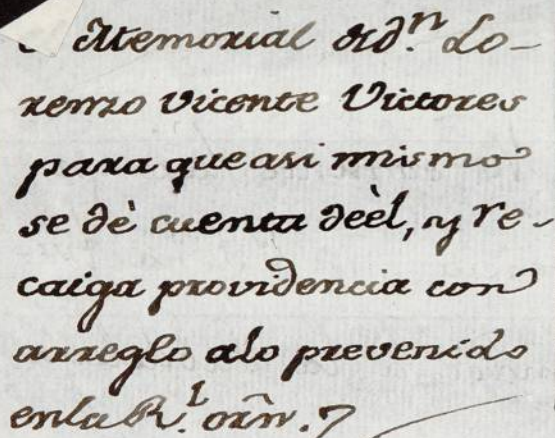 Memorial de d.n Lo-
renzo Vicente Victores
para que asi mismo
se dè cuenta deèl, y re-
caiga providencia con
arreglo alo prevenido
enla R.l orñ.